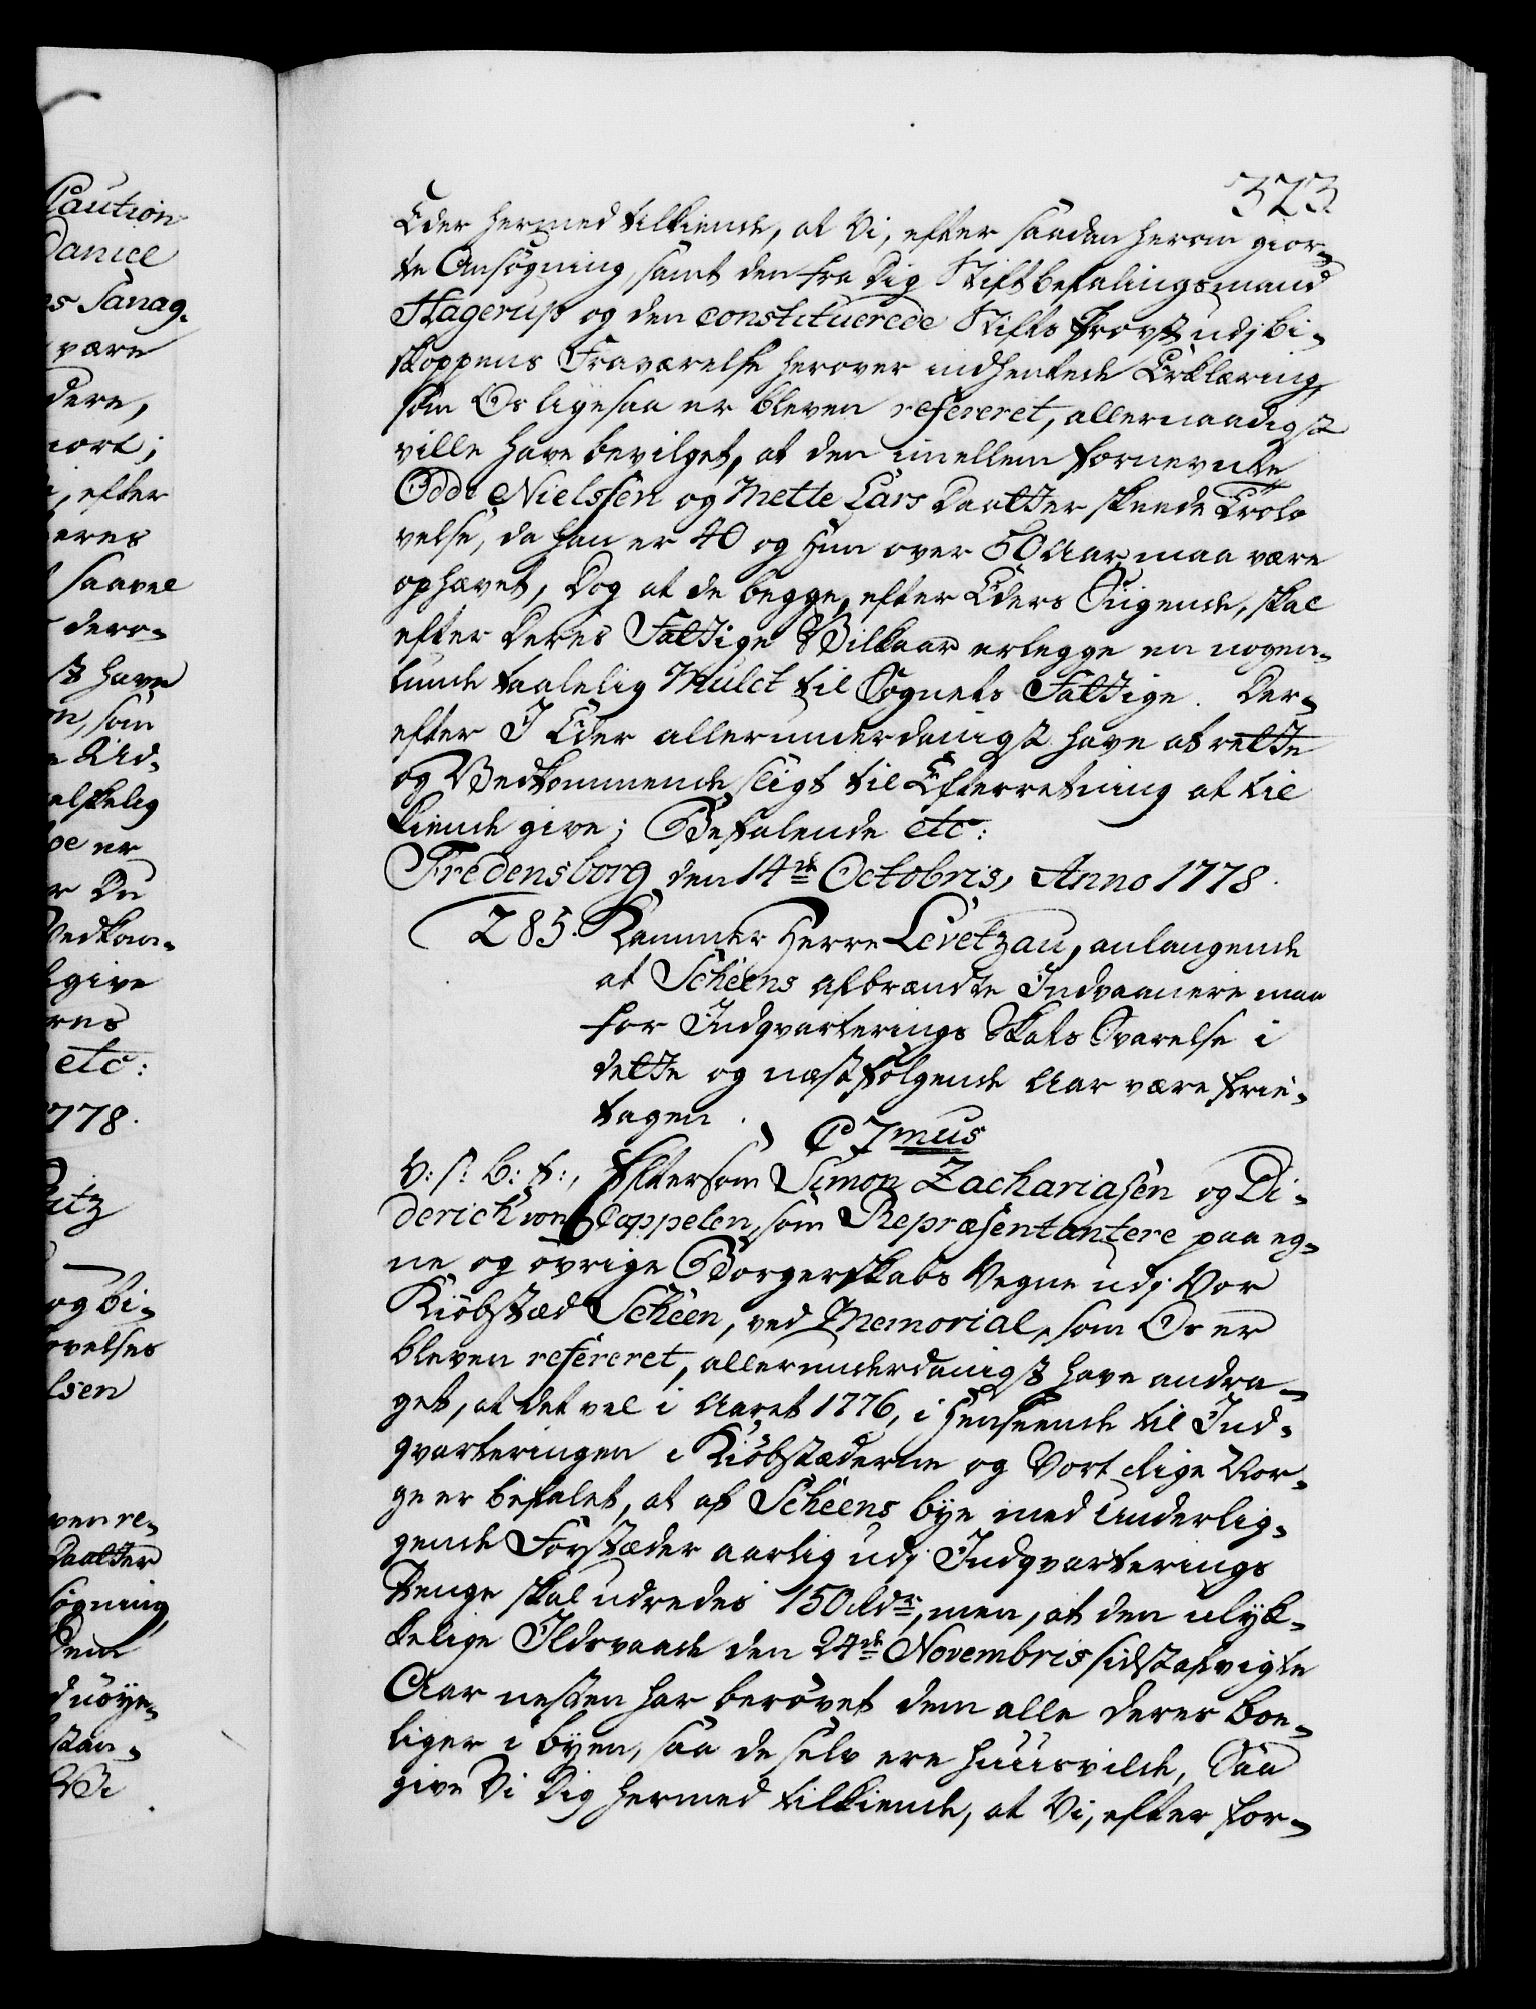 323.
Eder hermed tilkiende, at Vi, efter saadan herom gior-
te Ansøgning, samt den fra Dig Stiftbefalingsmand
Hagerup og den constituerede Stifts Provst udj Bi-
skoppens Fraværelse herover indhentede Erklæring,
som Os ligesaa er bleven refereret, allernaadigst
ville have bevilget, at den imellem fornevnte
Odde Nielssen og Mette Lars Daatter skeede Trolo-
velse, da han er 40 og hun over 50 Aar, maa være
ophævet, Dog at de begge, efter Eders Sigende, skal
efter deres Fattige Vilkaar erlegge en nogen-
lunde taalelig Mulct til Sognets Fattige. Der-
efter I Eder allerunderdanigst have at rette
og Vedkommende sligt til Efterretning at til
kiende give; Befalende etc:
Fredensborg den 14de Octobris, Anno 1778.
285. Kammer Herre Levetzau, anlangende
at Scheens afbrændte Indvaanere maa
for Indqvarterings Skats Svarelse i
dette og næstfølgende Aar være frie-
tagen.
C 7mus
V: S: B: T:, Eftersom Simon Zachariasen og Di-
derich von Cappelen, som Repræsentantere paa eg-
ne og øvrige Borgerskabs Vegne udj Vor
Kiøbstæd Scheen, ved Memorial, som Os er
bleven refereret, allerunderdanigst have andra-
get, at det vel i Aaret 1776, i Henseende til Ind-
qvarteringen i Kiøbstæderne og Vort Rige Nor-
ge er befalet, at af Scheens bye med underlig-
gende Forstæder aarlig udj Indqvarterings
Penge skal udredes 150 Rdr, men, at den ulyk-
kelige Ildsvaade den 24de Novembris sidstafvigte
Aar nesten har berøvet dem alle deres boe-
liger i byen, saa de selv ere huusvilde, Saa
give Vi Dig hermed tilkiende, at Vi, efter for-